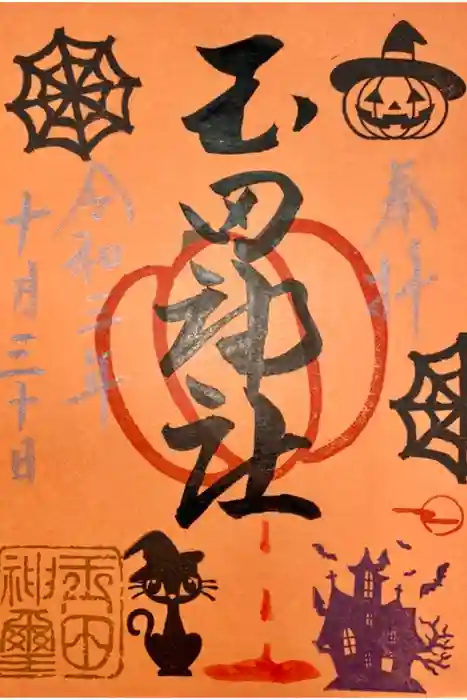 奉拝
玉田神社
令和三年
十月三十日
玉田
神璽